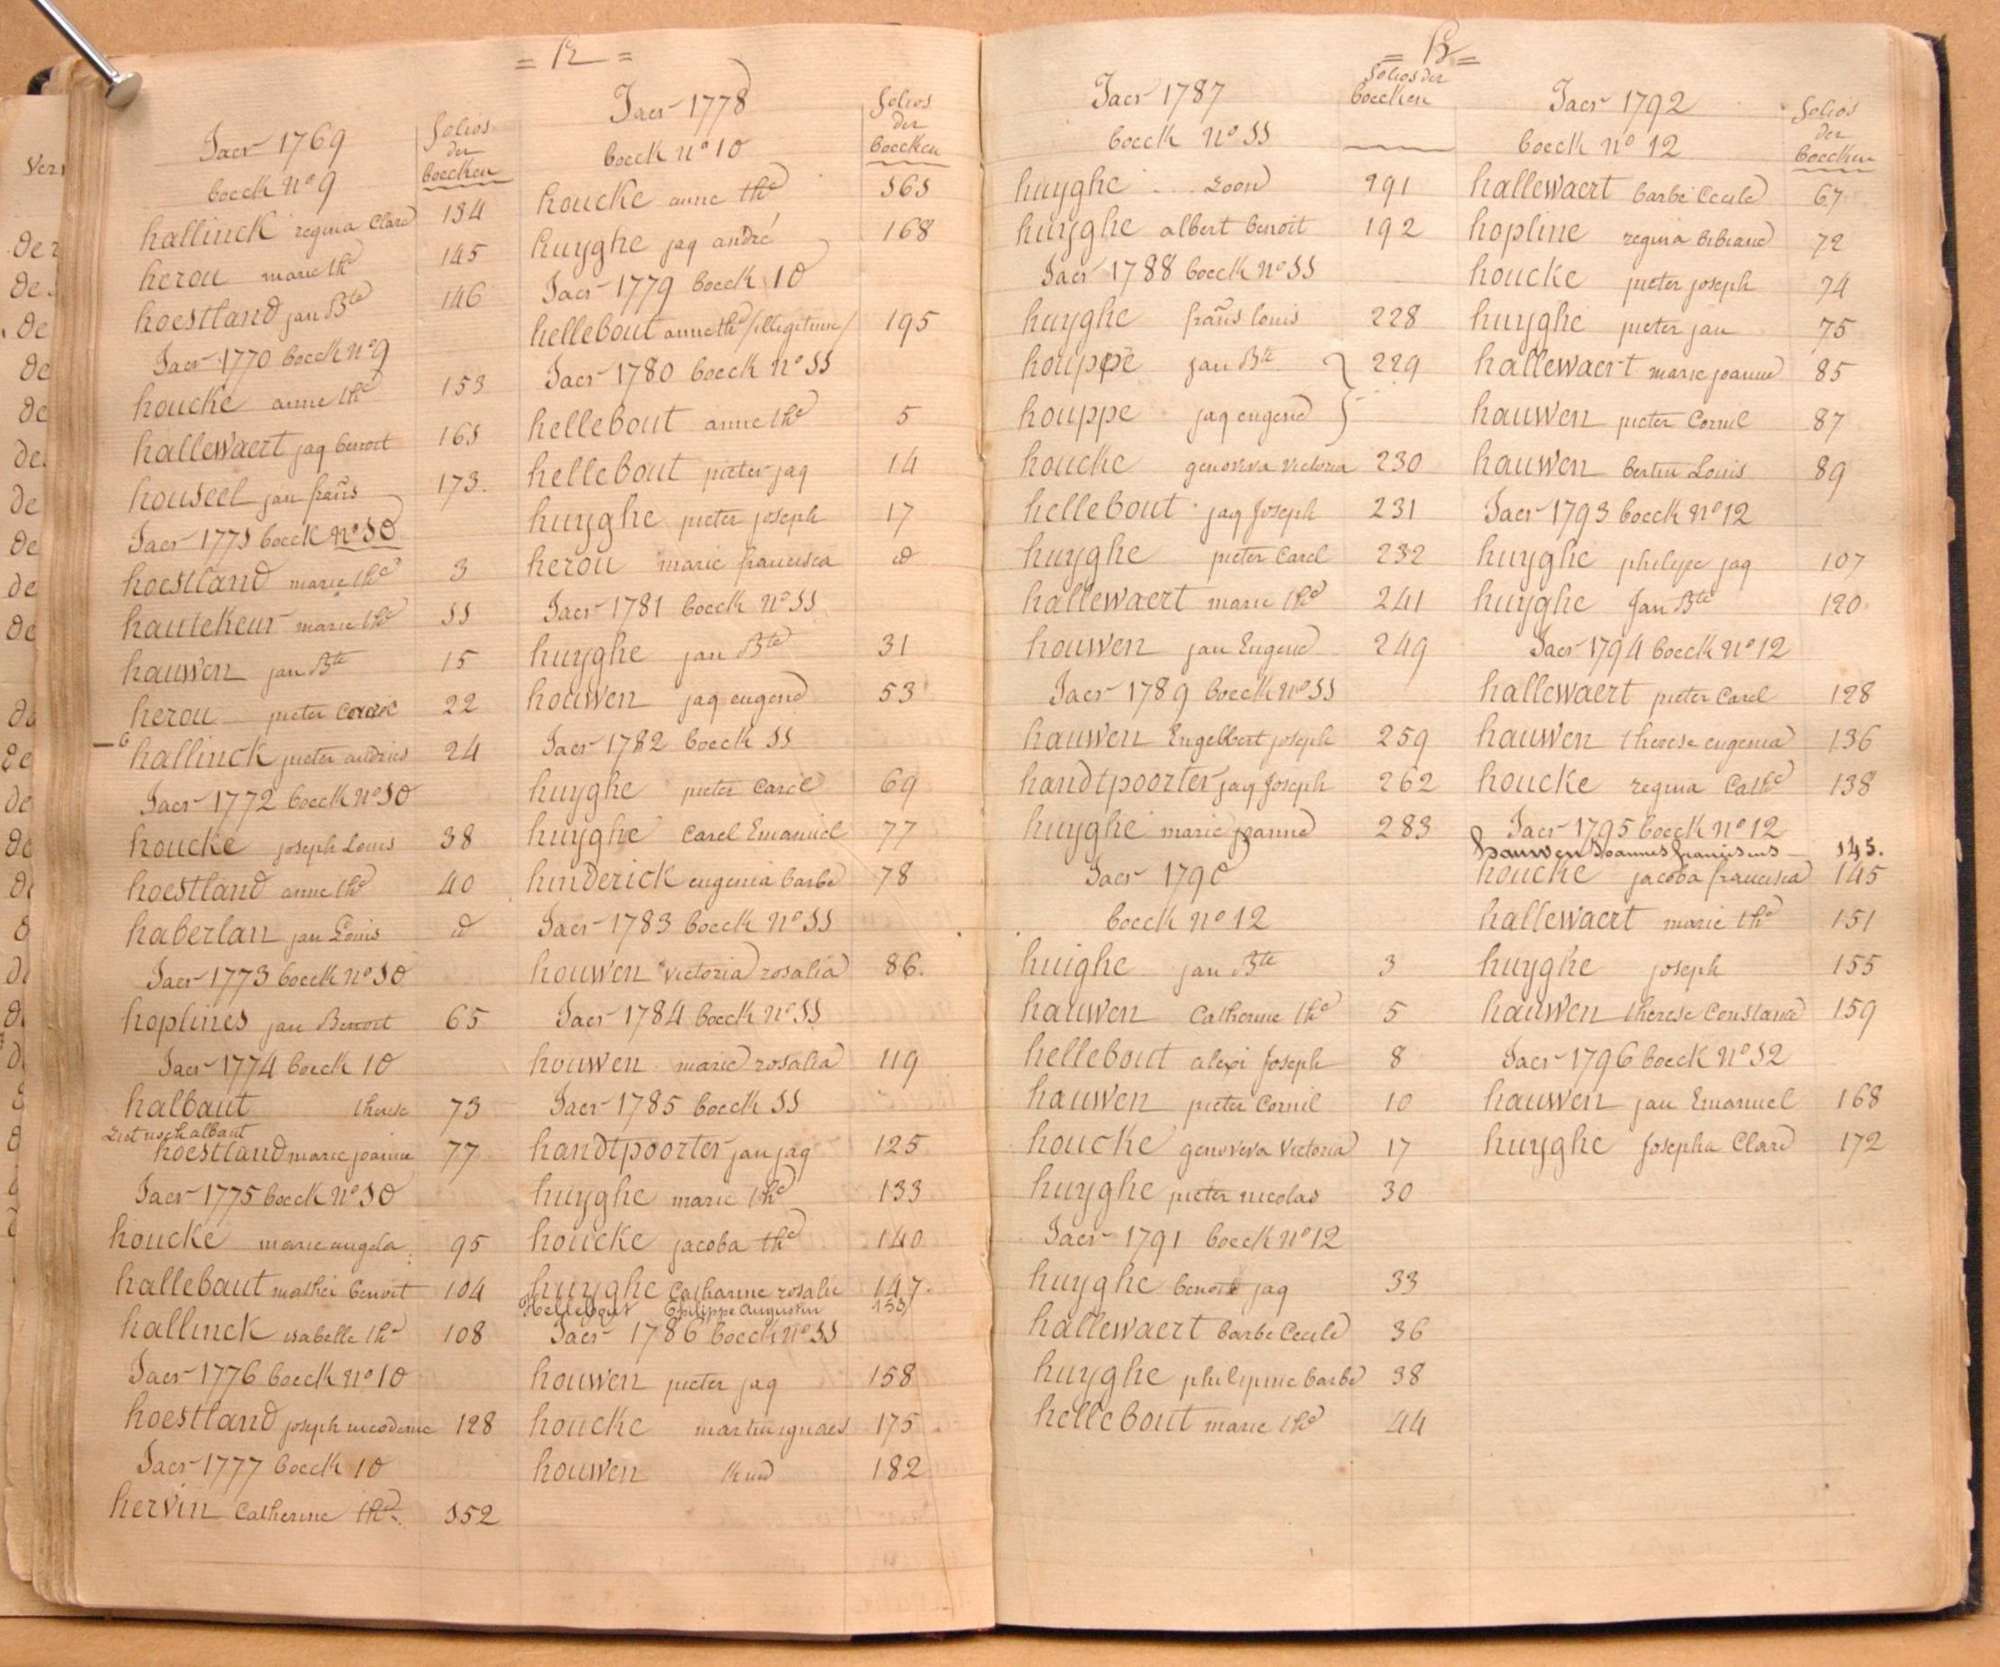 = H =
Jaer 1769
folios der boecken
boeck N° 9
hallinck regina Clare 134
herou marie the 145
hoestland jan Bte 146
Jaer 1770 boeck N° 9
houcke anne the 153
hallewaert jaq benoit 165
houseel jan frans 173.
Jaer 1771 boeck N° 10
hoestland marie the 3
hautekeur marie the 11
hauwen jan Bte 15
herou pieter 22
hallinck pieter andries 24
Jaer 1772 boeck N° 10
houcke joseph Louis 38
hoestland anne the 40
haberlan jan Louis d
Jaer 1773 boeck N° 10
hoplines jan Benoit 65
Jaer 1774 boeck 10
halbaut therese 73
hoestland marie joanne 77
Jaer 1775 boeck N° 10
houcke marie angela 95
hallebaut mathei benoit 104
hallinck isabelle the 108
Jaer 1776 boeck N° 10
hoestland joseph nicodeme 128
Jaer 1777 boeck 10
hervin Catherine the 152
Jaer 1778
folios der boecken
boeck N° 10
houcke anne the 161
huyghe jaq andré 168
Jaer 1779 boeck 10
hellebout anne the /illegitime/ 195
Jaer 1780 boeck N° 11
hellebout anne the 5
hellebout pieter jaq 14
huyghe pieter joseph 17
herou marie francisca d
Jaer 1781 boeck N° 11
huyghe jan Bte 31
houwen jaq eugene 53
Jaer 1782 boeck 11
huyghe pieter Carel 69
huyghe Carel Emanuel 77
hinderick eugenia barbe 78
Jaer 1783 boeck N° 11
houwen Victoria rosalia 86.
Jaer 1784 boeck N° 11
houwen marie rosalia 119
Jaer 1785 boeck 11
handtpoorter jan jaq 125
huyghe marie the 133
houcke jacoba the 140
huyghe Catharine rosalie 147.
Hellebout Philippe Augustin 153
Jaer 1786 boeck N° 11
houwen pieter jaq 158
houcke martin ignaes 175
houwen kind 182
= H =
Jaer 1787
folios der boecken
boeck N° 11
huyghe .... zoon 191
huyghe albert benoit 192
Jaer 1788 boeck N° 11
huyghe frans louis 228
houppe jan Bte } 229
houppe jaq eugene }
houcke genoveva victoria 230
hellebout jaq Joseph 231
huyghe pieter Carel 232
hallewaert marie the 241
houwen jan Eugene 249
Jaer 1789 boeck N° 11
hauwen Engelbert joseph 259
handtpoorter jaq Joseph 262
huyghe marie joanne 283
Jaer 1790
boeck N° 12
huighe jan Bte 3
hauwen Catherine the 5
hellebout alexi Joseph 8
hauwen pieter Cornil 10
houcke genoveva Victoria 17
huyghe pieter nicolas 30
Jaer 1791 boeck N° 12
huyghe benoit jaq 33
hallewaert barbe Cecile 36
huyghe philipine barbe 38
hellebout marie the 44
Jaer 1792
folios der boecken
boeck N° 12
hallewaert barbe Cecile 67
hopline regina bibiane 72
houcke pieter joseph 74
huyghe pieter jan 75
hallewaert marie joanne 85
hauwen pieter Cornil 87
hauwen bertin Louis 89
Jaer 1793 boeck N° 12
huyghe philippe jaq 107
huyghe Jan Bte 120
Jaer 1794 boeck N° 12
hallewaert pieter Carel 128
hauwen therese eugenia 136
houcke regina Cathe 138
Jaer 1795 boeck N° 12
hauwen Joannes franciscus 145.
houcke jacoba francisca 145
hallewaert marie the 151
huyghe joseph 155
hauwen therese Constance 159
Jaer 1796 boeck N° 12
hauwen jan Emanuel 168
huyghe Josepha Clare 172